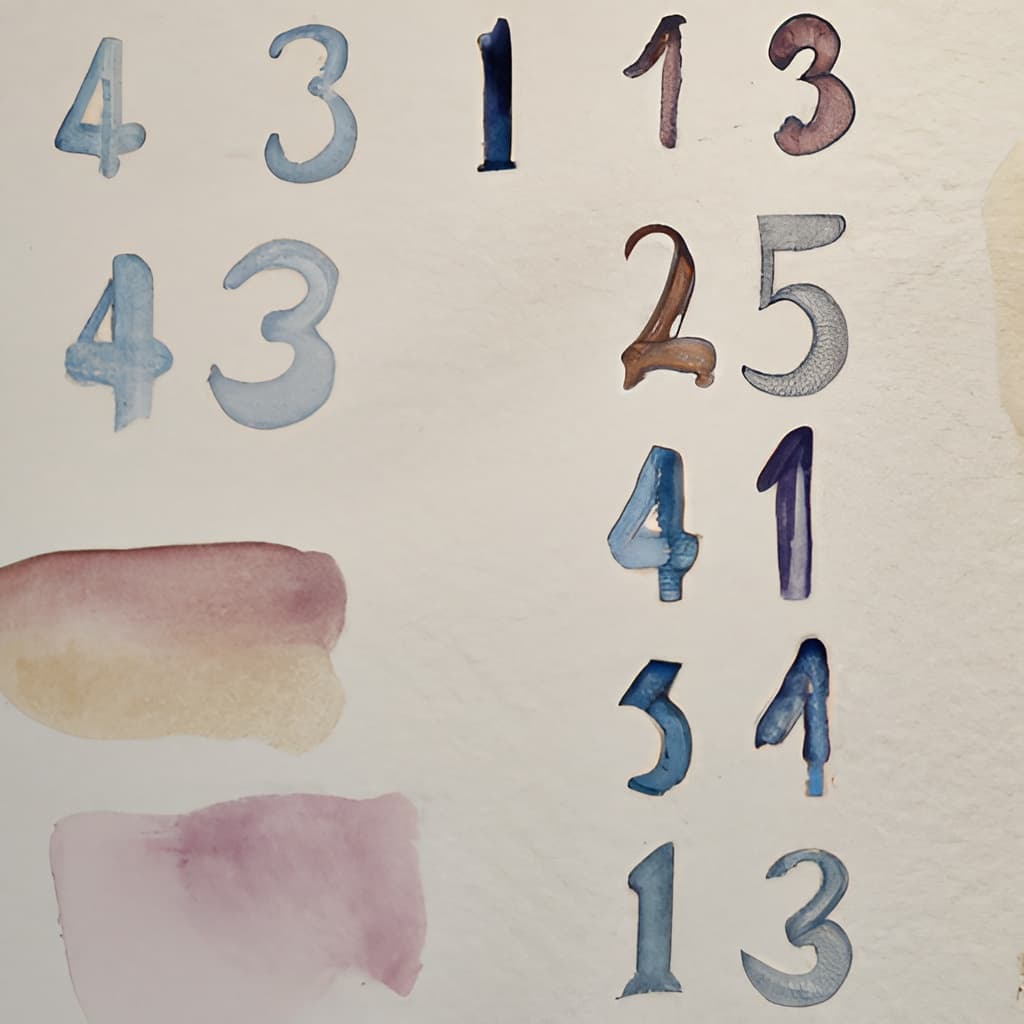 4 3 1 13
43 25
41
51
13